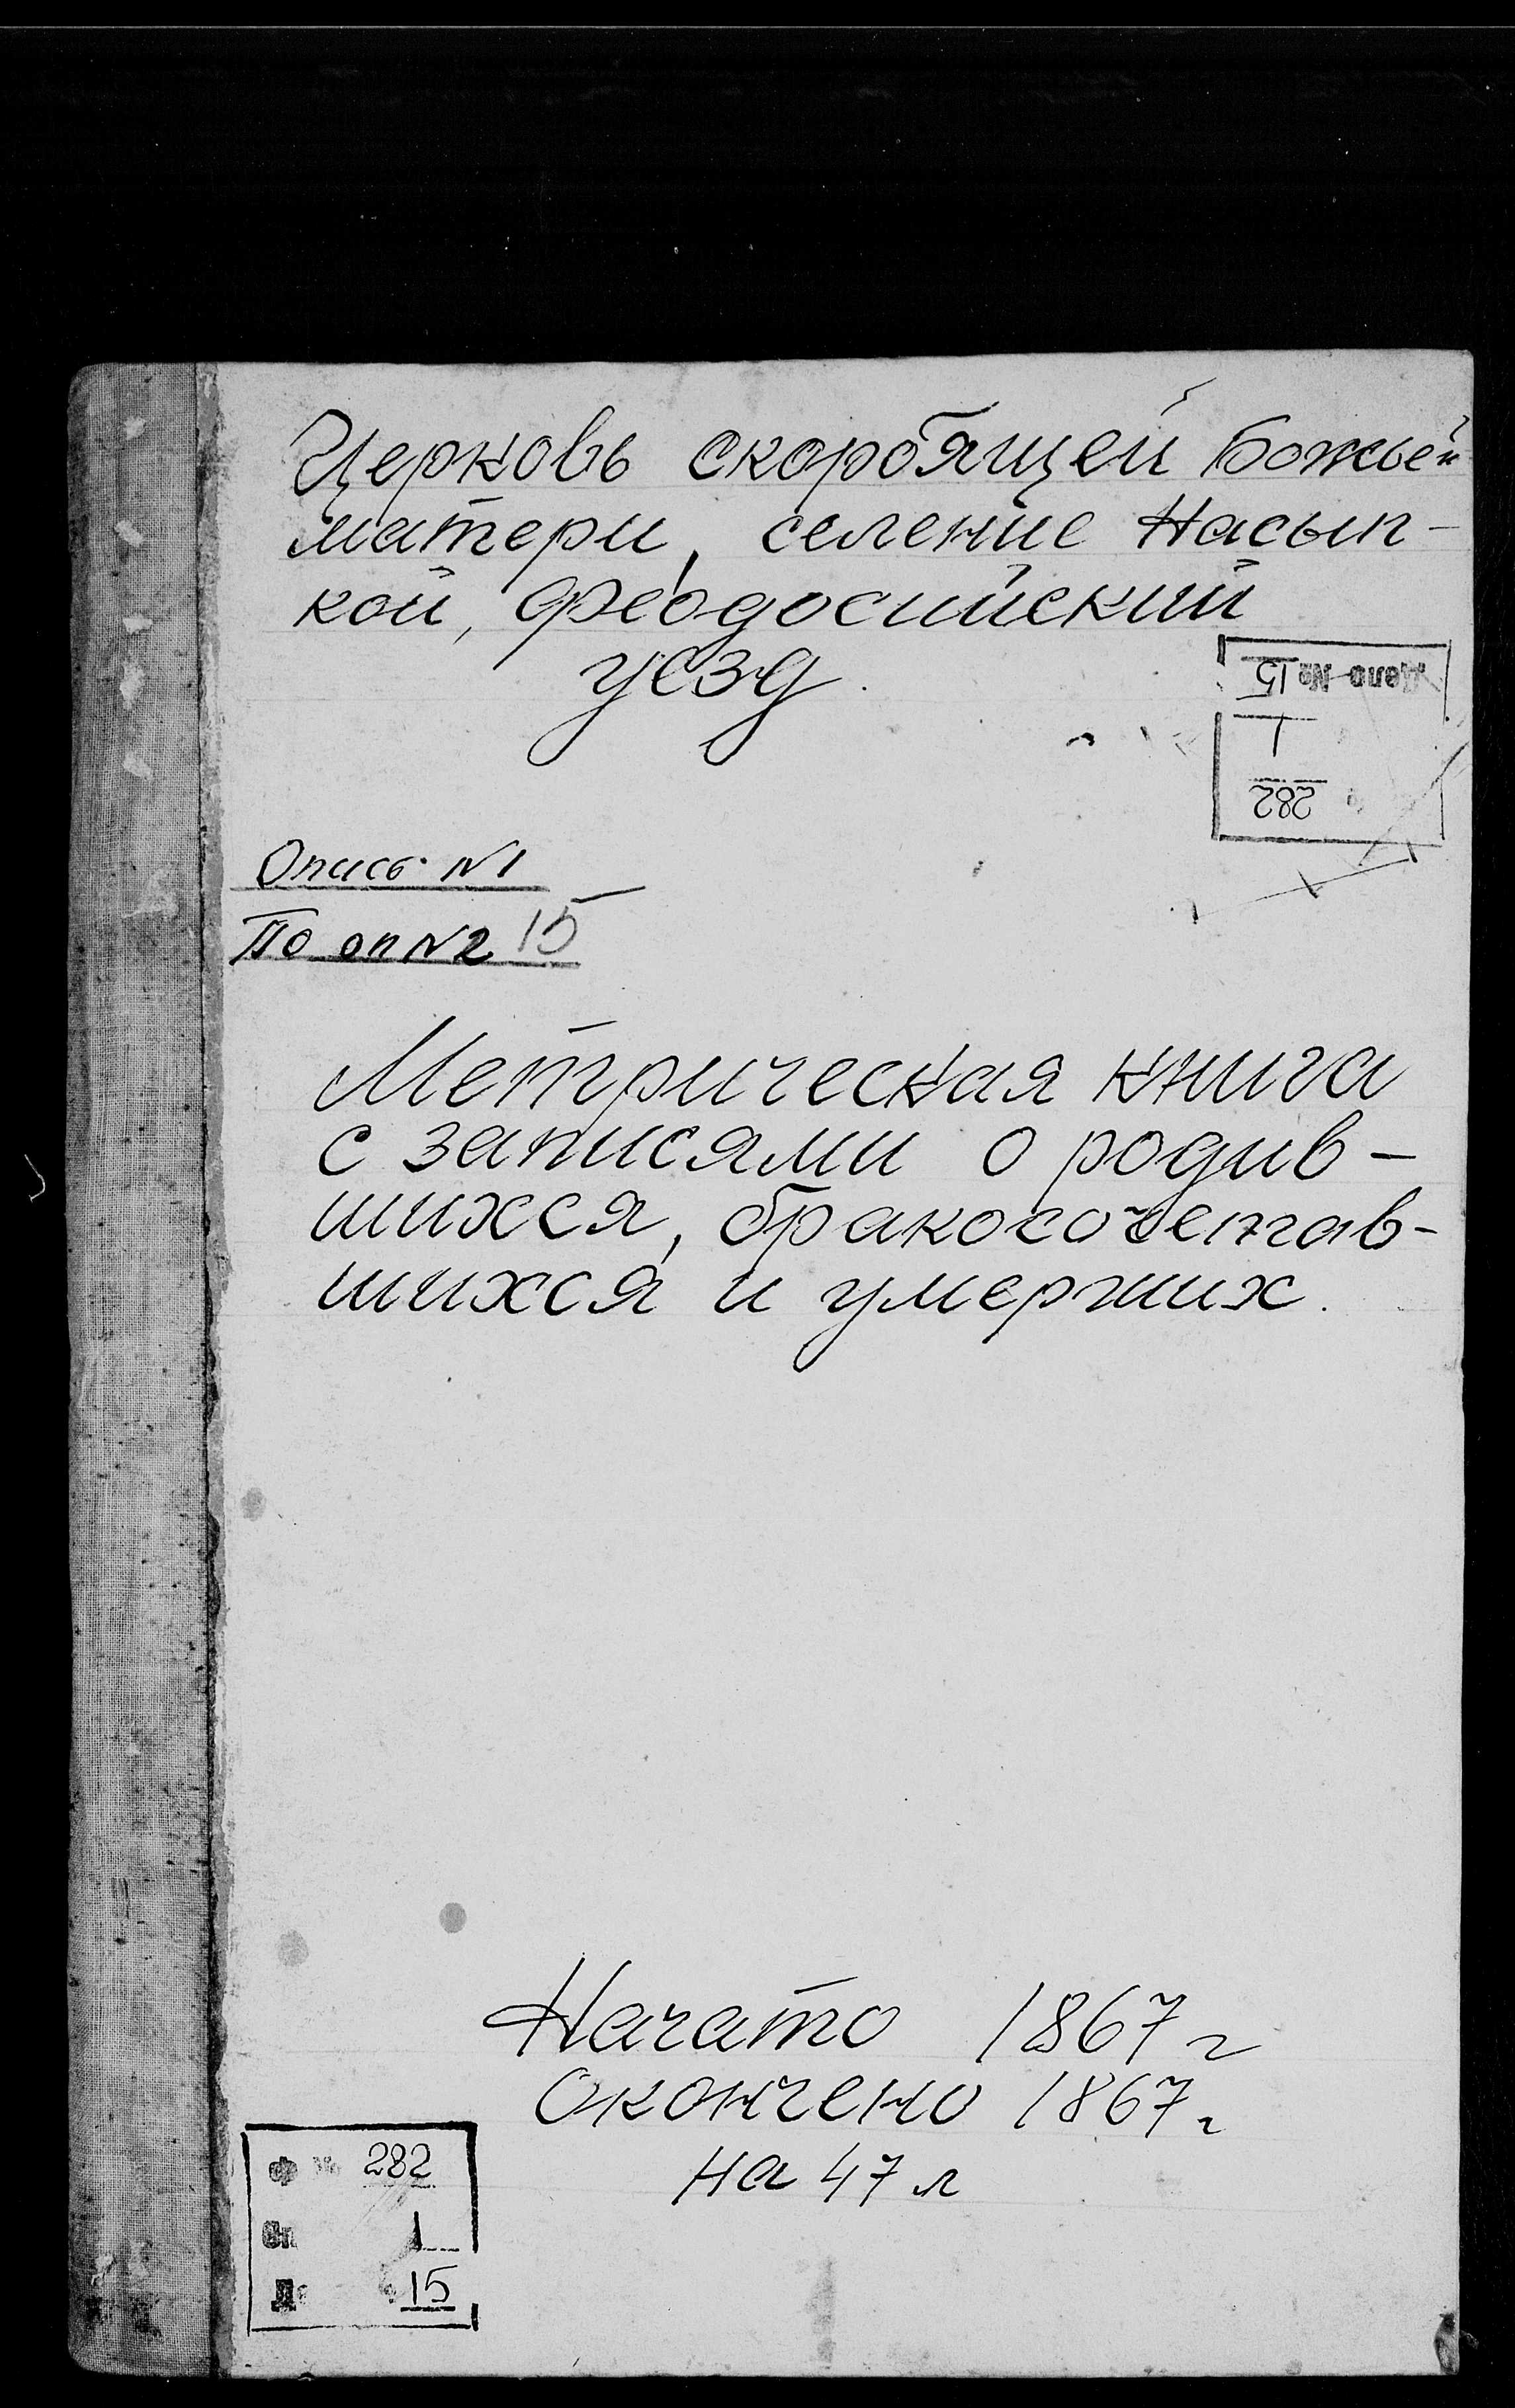 Церковь скорбящей Божьей
матери, селение Насып-
кой, Феодосийский
уезд.
Дело № 15
1
282
Опись N1
По оп N2 15
Метрическая книга
с записями о родив-
шихся, бракосочетав-
шихся и умерших.
Начато 1867 г
Окончено 1867 г
на 47 л
Ф № 282
Оп 1
Д 15